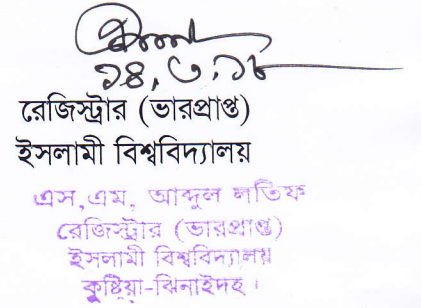 ১৪.৩.১৮
রেজিস্ট্রার (ভারপ্রাপ্ত)
ইসলামী বিশ্ববিদ্যালয়
এস,এম, আব্দুল লতিফ
রেজিস্ট্রার (ভারপ্রাপ্ত)
ইসলামী বিশ্ববিদ্যালয়
কুষ্টিয়া-ঝিনাইদহ।